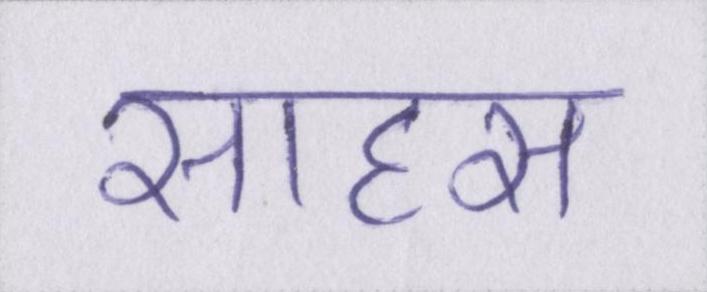 साहस